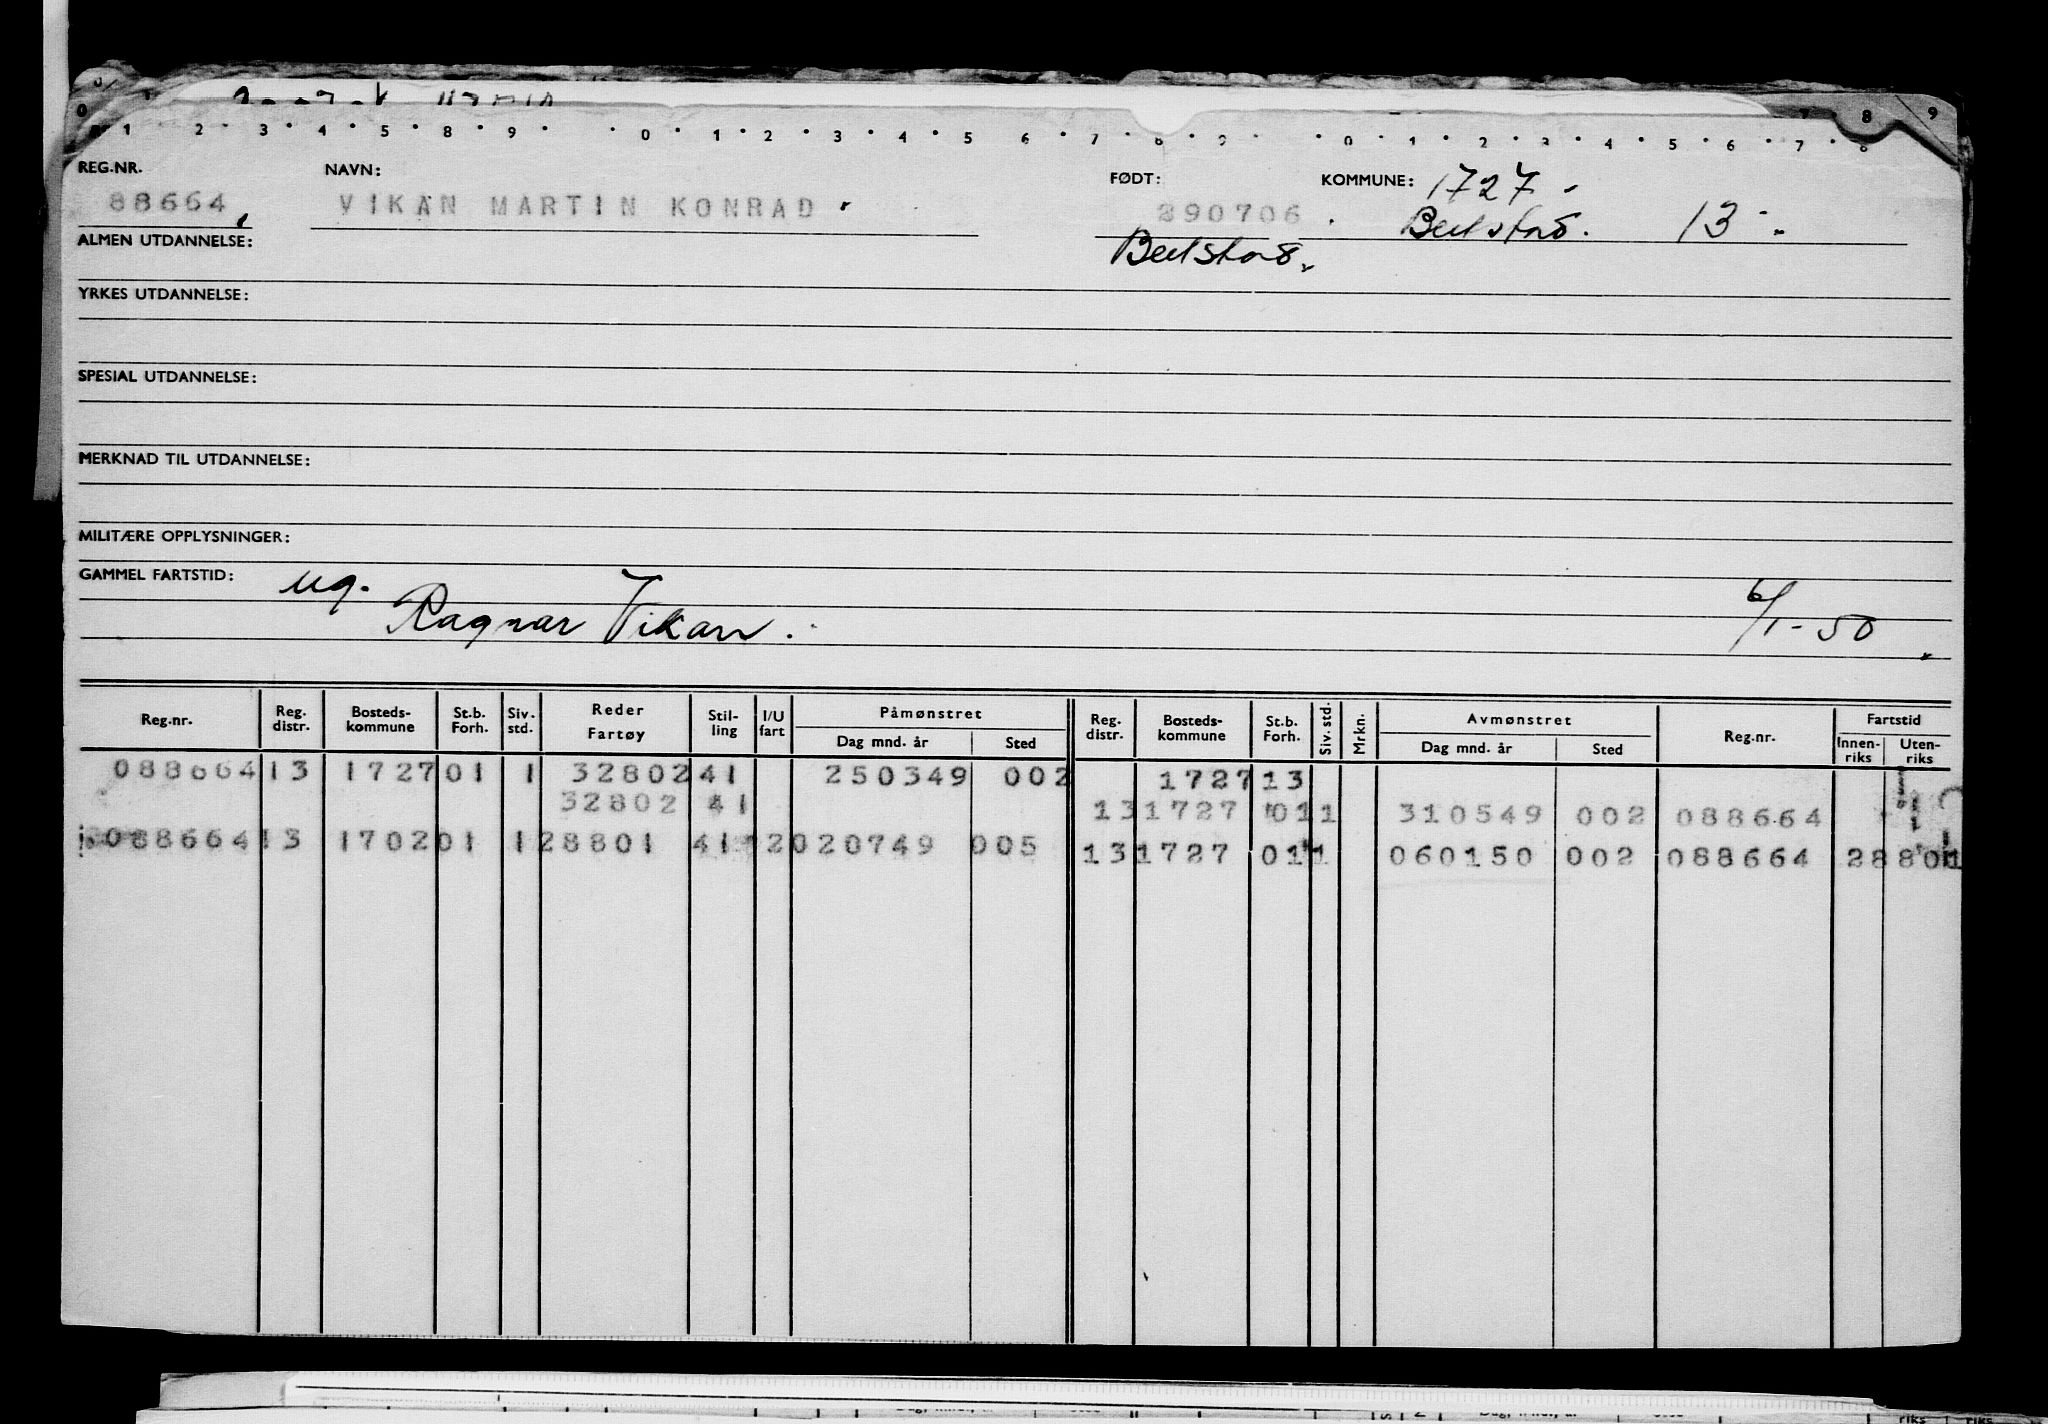 1 2 3 4 5 6 7 8 9 0 1 2 3 4 5 6 7 8 9 0 1 2 3 4 5 6 7 8 9
REG.NR. NAVN: FØDT: KOMMUNE: 1727 -
88664 VIKAN MARTIN KONRAD 290706 Beitstad. 13 -
ALMEN UTDANNELSE: Beitstad.
YRKES UTDANNELSE:
SPESIAL UTDANNELSE:
MERKNAD TIL UTDANNELSE:
MILITÆRE OPPLYSNINGER:
GAMMEL FARTSTID: ug. 6/1-50
Ragnar Vikan.
Reg.nr. Reg. distr. Bosteds-kommune St.b. Forh. Siv. std. Reder Fartøy Stil-ling I/U fart Påmønstret Dag mnd. år Sted Reg. distr. Bosteds-kommune St.b. Forh. Siv. std. Mrkn. Avmønstret Dag mnd. år Sted Reg.nr. Fartstid Innen-riks Uten-riks
088664 13 1727 01 1 32802 41 250349 002 1727 13
32802 41 13 1727 01 1 310549 002 088664
088664 13 1702 01 1 28801 41 2 020749 005 13 1727 01 1 060150 002 088664 28801